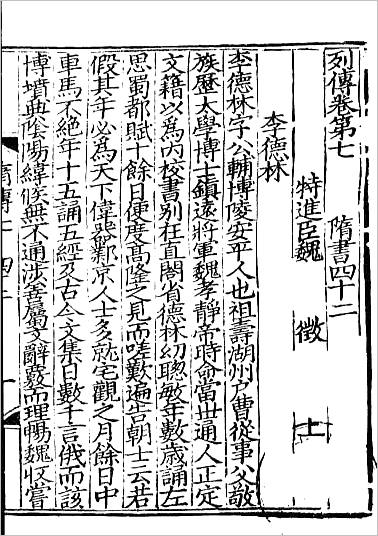 列傳卷第七 隋書四十二
特進臣魏 徵 上
李德林
李德林字公輔博陵安平人也祖壽湖州户曹從事父敬
族歷太學博士鎮遠將軍魏孝靜帝時命當世通人正定
文籍以爲内校書别在直閤省德林幼聰敏年數歲誦左
思蜀都賦十餘日便度高隆之見而嗟歎遍告朝士云若
假其年必爲天下偉器鄴京人士多就宅觀之月餘日中
車馬不絶年十五誦五經及古今文集日數千言俄而該
博墳典陰陽緯候無不通涉善屬文辭覈而理暢魏收嘗